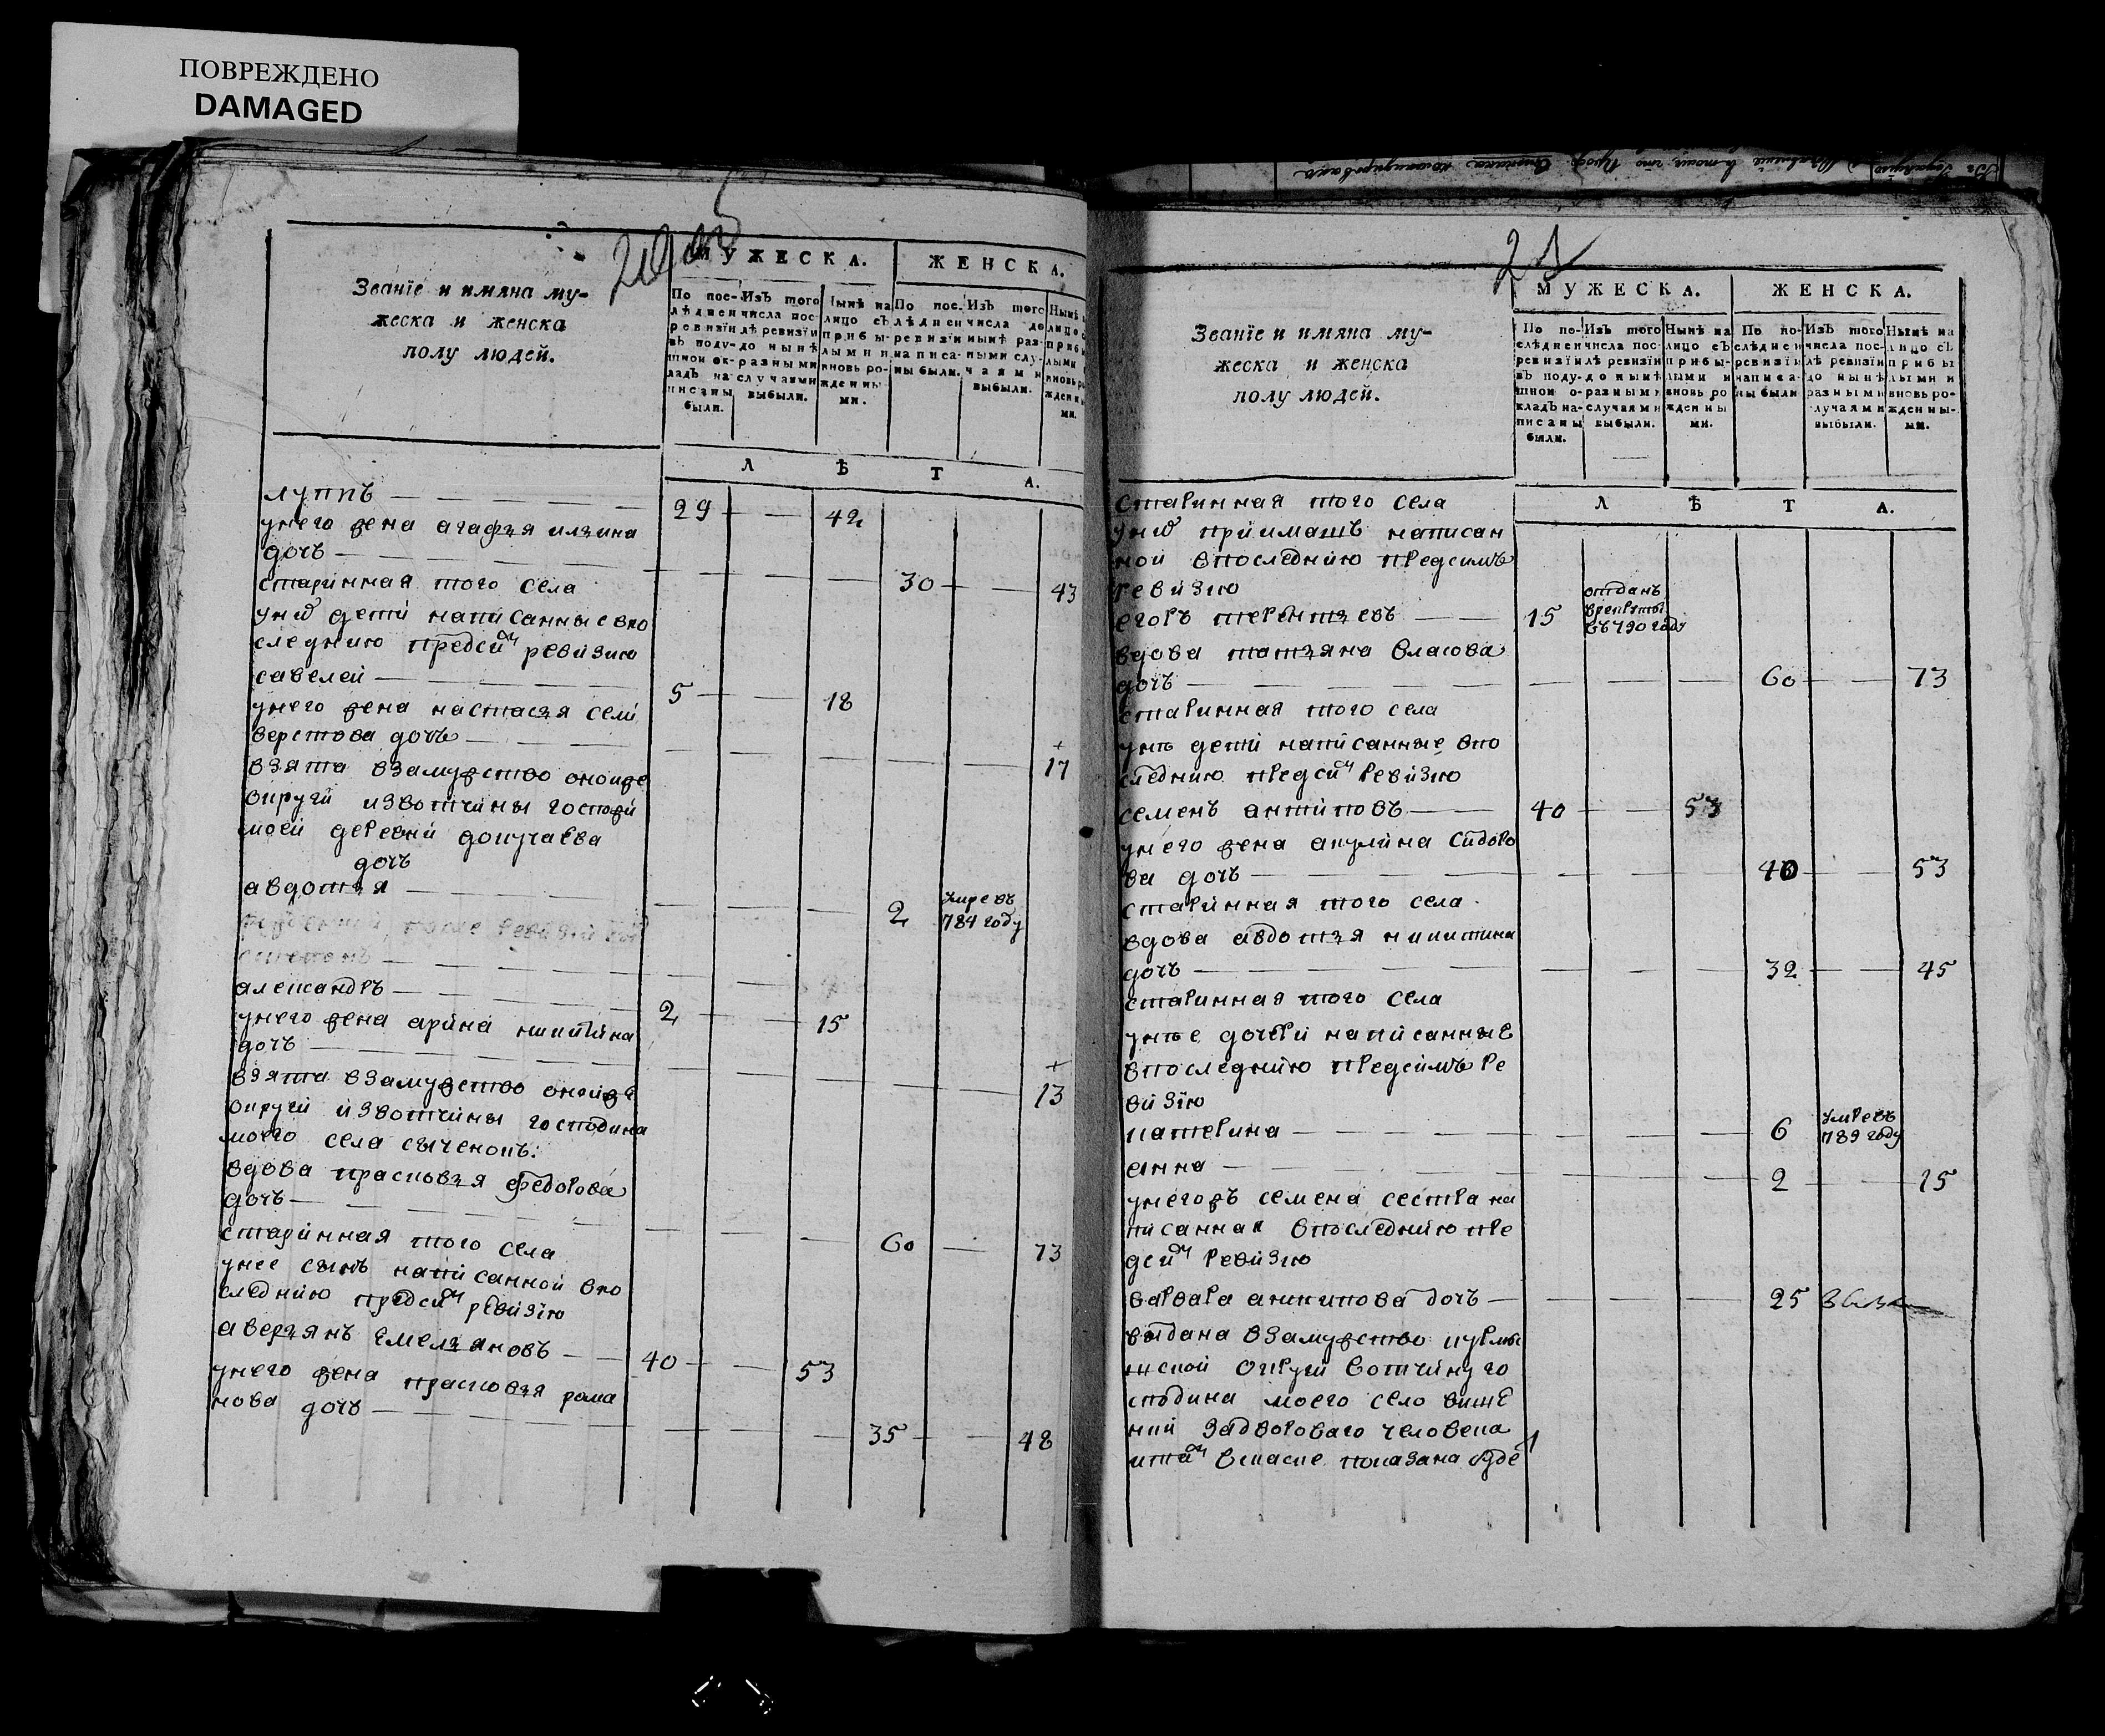 ПОВРЕЖДЕНО
DAMAGED
Званїе и имяна му-
жеска и женска
полу людей.
МУЖЕСКА.
ЖЕНСКА.
По пос-
лѣдней
ревизїи
въ поду-
шной ок-
ладъ на-
писаны
были.
Изъ того
числа пос-
лѣ ревизїи
до нынѣ
разными
случаями
выбыли.
Нынѣ на
лицо съ
прибы-
лыми и
вновь ро-
жденны
ми.
По пос.
лѣдней
ревизїи
написа-
ны были.
Изъ того
числа до
нынѣ раз-
ными слу-
чаями
выбыли.
Л Ѣ Т А.
лупъ 29 42
унего жена агафья ильина
дочь 30 43
старинная того села
униⷯ дети написанные впо
следнию предсиⷨ ревизию
савелей 5 18
унего жена настасья сели
верстова дочь 17
взята взамужство оноиже
округи извотчины госпожи
моеи деревни докучаева
дочь
авдотья 2 умре въ 784 году
александръ 2 15
унего жена арина никитина
дочь 13
взята взамужство оноиже
округи извотчины господина
моего села сыченокъ.
вдова прасковья федорова
дочь 60 73
старинная того села
унее сынъ написанной впо
следнию предсиⷨ ревизїю
аверьянъ емельяновъ 40 53
унего жена прасковья рома
нова дочь 35 48
21
Званїе и имяна му-
жеска и женска
полу людей.
МУЖЕСКА.
ЖЕНСКА.
По по-
слѣдней
ревизїи
въ поду-
шной о-
кладъ на-
писаны
были.
Изъ того
числа пос-
лѣ ревизїи
до нынѣ
разными
случаями
выбыли.
Нынѣ на
лицо съ
прибы-
лыми и
вновь ро
жденны
ми.
По по-
слѣдней
ревизїи
написа-
ны были
Изъ того
числа пос-
лѣ ревизїи
до нынѣ
разными
случаями
выбыли.
Нынѣ на
лицо съ
прибы
лыми и
вновь ро-
жденны-
ми.
Л Ѣ Т А.
старинная того села
униⷯ приимашъ написан
ной впоследнию предсимъ
ревизию
егоръ терентьевъ 15 отданъ врекруты въ 790 году
вдова татьяна власова
дочь 60 73
старинная того села
унъ дети написанные впо
следнию предсиⷨ ревизию
семенъ антиповъ 40 53
унего жена акулина сидоро
ва дочь 40 53
старинная того села
вдова авдотья никитина
дочь 32 45
старинная того села
унъе дочери написанные
впоследнию предсимъ ре
визїю
катерина 6 умре въ 789 году
анна 2 15
унегожъ семена сестра на
писанная впоследнию пре
дсиⷨ ревизию
варвара антипова дочь 25
выдана взамужство курмы
шской округи вотчину го
сподина моего село
задвороваго человека
итаⷨ всказке показана буде